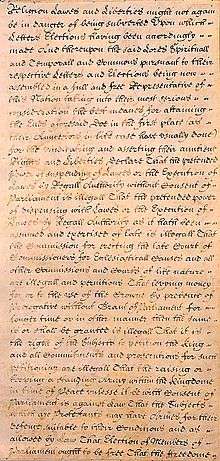 Religion Lawes and Liberties might not again
be in danger of being subverted Upon which
Letters Elections having been accordingly
made And thereupon the said Lords Spirituall
and Temporall and Commons pursuant to their
respective Letters and Elections being now
assembled in a full and free Representative of
this Nation taking into their most serious
consideration the best meanes for attaining
the Ends aforesaid Doe in the first place (as
their Auncestors in like case have usually done)
for the vindicating and asserting their auntient
Rights and Liberties, Declare That the pretended
Power of suspending of Lawes or the Execution of
Lawes by Regall Authority without Consent of
Parliament is illegall That the pretended power
of dispensing with Lawes or the Execution of
Lawes by Regall Authority as it hath been
assumed and exercised of late is illegall That
the Commission for erecting the late Court of
Commissioners for Ecclesiasticall Causes and all
other Commissions and Courts of like nature
are illegall and pernicious That levying money
for or to the use of the Crowne by pretence of
Prerogative without Grant of Parliament for
longer time or in other manner then the same
is or shall be granted is illegall That it is
the right of the Subjects to petition the King
and all Committments and prosecutions for such
petitioning are illegall That the raising or
keeping a standing Army within the Kingdome
in time of Peace unlesse it be with Consent of
Parliament is against Law That the Subjects
which are Protestants may have Armes for their
defence Suitable to their Conditions and as
allowed by Law That Election of Members of
Parliament ought to be free That the freedome